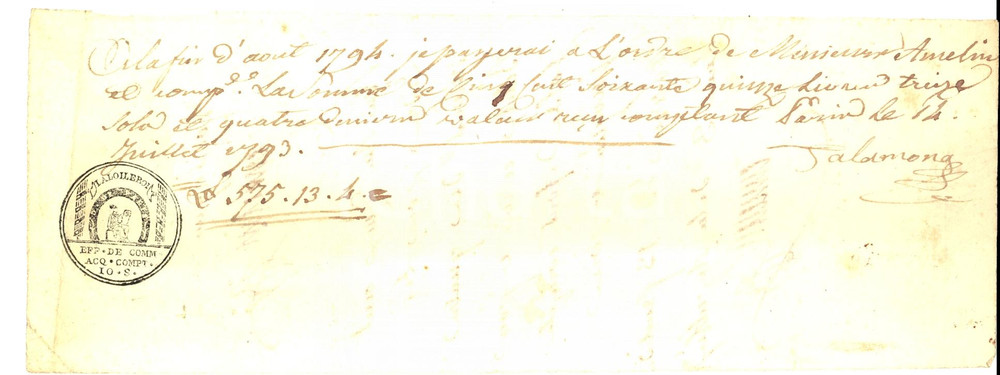 A la fin d'aout 1794. je payerai a L'ordre de Messieurs Amelin
et comp.e La Somme de Cinq Cent Soixante quinze Livres treize
Sols et quatre deniers valeur reçue comptant Paris Le 14.
Juillet 1793.
Talamona
575.13.4.
LA LOI LE ROI
EFF·DE COMM
ACQ·COMPT·
10·S·